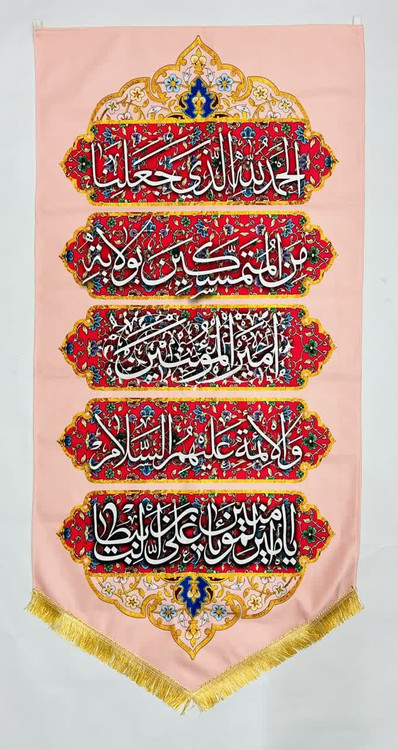 الحمد لله الذي جعلنا
من المتمسكين بولاية
أمير المؤمنين
والائمة عليهم السلام
يا أمير المؤمنين يا علي بن أبي طالب